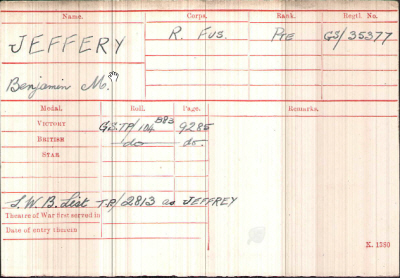 Name. Corps. Rank. Regtl. No.
JEFFERY R. Fus. Pte GS/35377
Benjamin M.
Medal. Roll. Page. Remarks.
VICTORY G.S.TP/104 B83 9285
BRITISH do do.
STAR
S.W.B. List T.P/2813 as JEFFREY
Theatre of War first served in
Date of entry therein
K. 1380